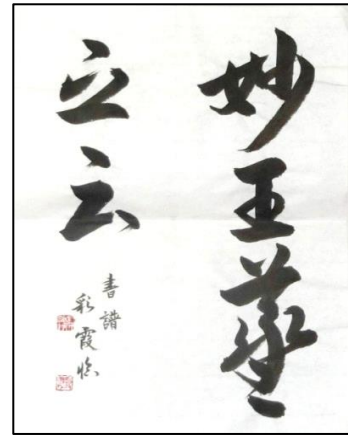 妙王羲
之云
書譜
彩霞臨